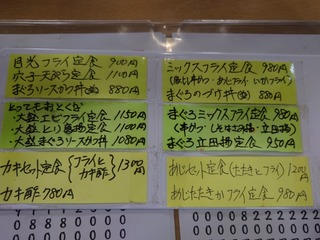 目光フライ定食 900円
穴子天ぷら定食 1100円
まぐろソースカツ丼 880円
ミックスフライ定食 980円
あじフライ イカフライ
まぐろのづけ丼 880円
とってもおとくな
・大盛エビフライ定食 1150円
・大盛とり唐揚定食 1100円
・大盛まぐろソースカツ丼 1080円
まぐろミックスフライ定食 980円
まぐろ立田揚定食 950円
カキセット定食 {フライとカキ酢} 1300円
カキ酢 780円
あじセット定食 (たたきとフライ) 1200円
あじたたきorフライ定食 980円